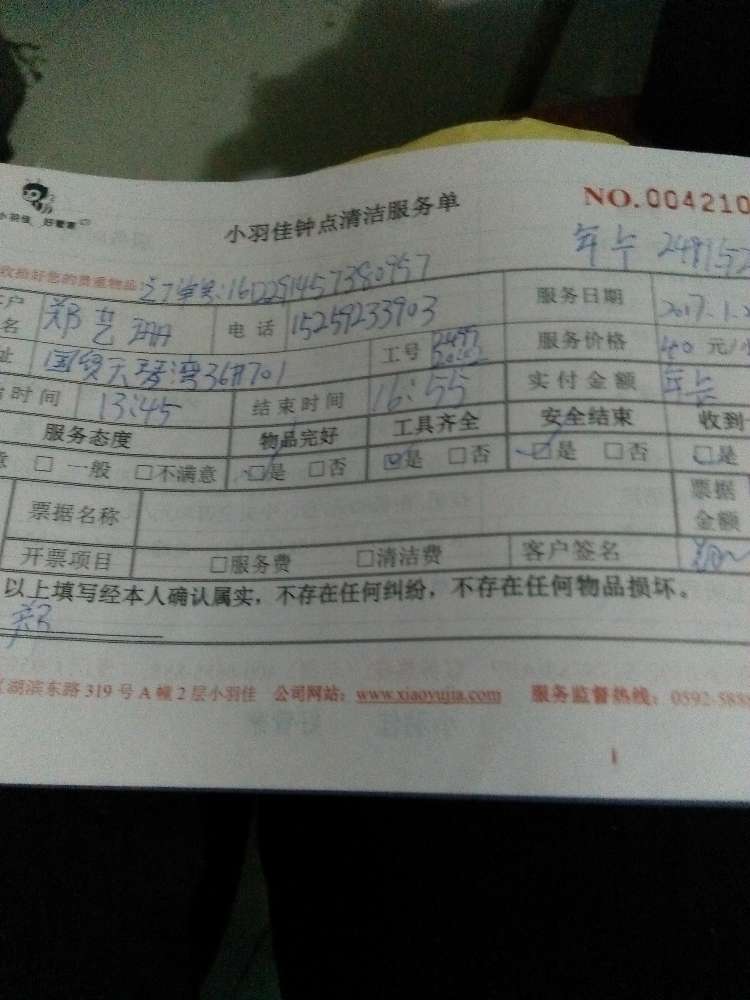 小羽佳 好管家
小羽佳钟点清洁服务单
NO.004210
收拾好您的贵重物品
户 郑艺 电话 15259233903 服务日期 2017.1.2
名
址 国贸天琴湾36#701 工号 服务价格 40 元/
时间 13:45 结束时间 16:55 实付金额 年卡
服务态度 物品完好 工具齐全 安全结束 收到
意 □一般 □不满意 □是 □否 □是 □否 □是 □否 □是
票据名称 票据
金额
开票项目 □服务费 □清洁费 客户签名
以上填写经本人确认属实，不存在任何纠纷，不存在任何物品损坏。
郑
湖滨东路 319 号 A 幢 2 层小羽佳 公司网站：www.xiaoyujia.com 服务监督热线：0592-588